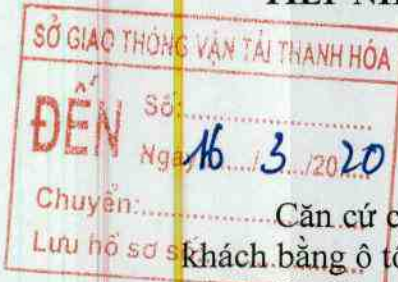 SỞ GIAO THÔNG VẬN TẢI THANH HÓA
ĐẾN
Số:
Ngày 16 / 3 /2020
Chuyển:
Lưu hồ sơ số
Căn cứ c
khách bằng ô tô